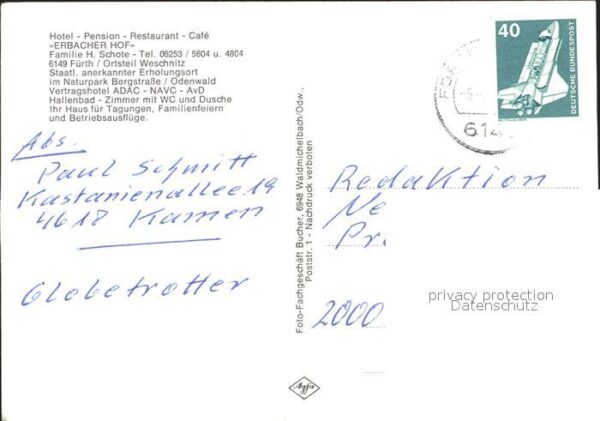 Hotel - Pension - Restaurant - Café
»ERBACHER HOF«
Familie H. Schote - Tel. 06253 / 5604 u. 4804
6149 Fürth / Ortsteil Weschnitz
Staatl. anerkannter Erholungsort
im Naturpark Bergstraße / Odenwald
Vertragshotel ADAC - NAVC - AvD
Hallenbad - Zimmer mit WC und Dusche
Ihr Haus für Tagungen, Familienfeiern
und Betriebsausflüge.
Abs.
Paul Schmitt
Kastanienallee 19
4618 Kamen
Globetrotter
Foto-Fachgeschäft Bucher, 6948 Waldmichelbach/Odw.,
Poststr. 1 - Nachdruck verboten
Agfa
40
DEUTSCHE BUNDESPOST
614
Redaktion
Ne
Pr.
2000
privacy protection
Datenschutz